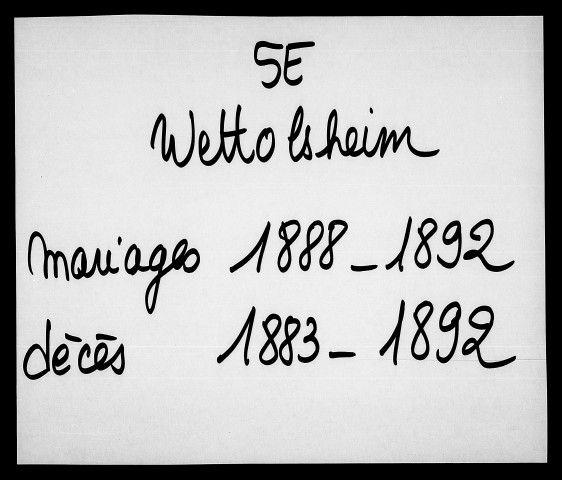 5E
Wettolsheim
mariages 1888-1892
décès 1883-1892